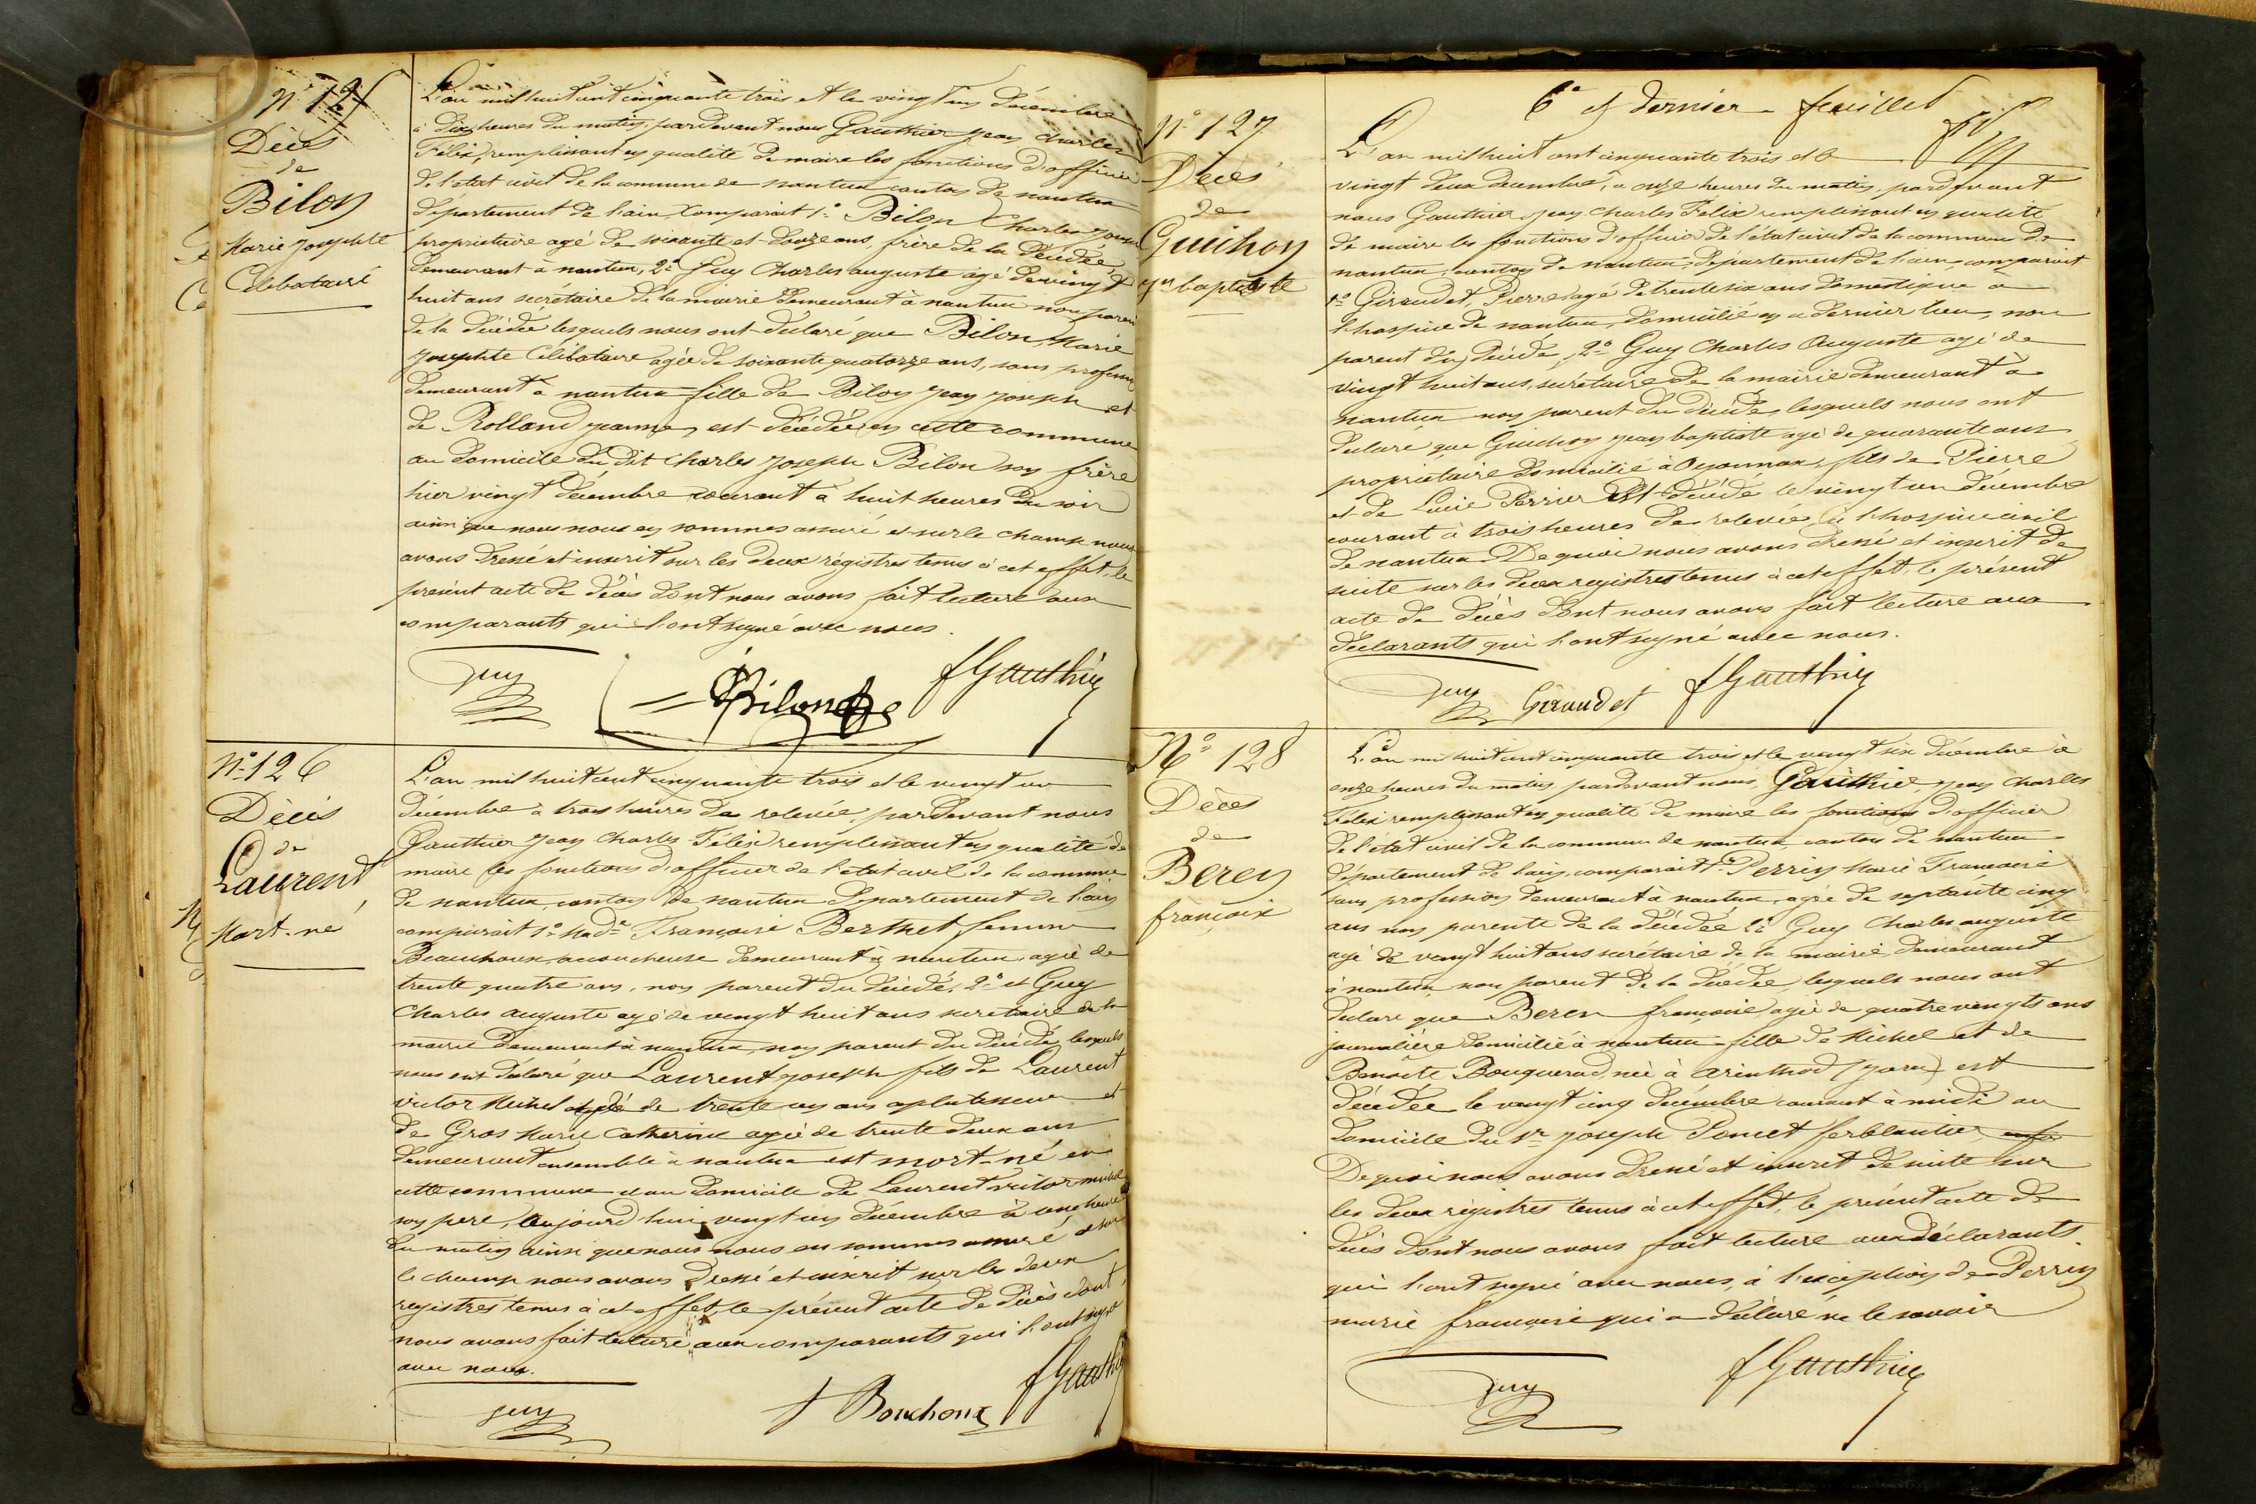 N° 125
Décès
de
Bilon
Marie Josephte
Célibataire
L'an mil huit cent cinquante trois et le vingt un décembre
à dix heures du matin, pardevant nous Gauthier Jean Charles
Félix, remplissant en qualité de maire les fonctions d'officier
de l'état civil de la commune de nantua canton de nantua
département de l'ain, Comparait 1° Bilon Charles Joseph
propriétaire agé de soixante et douze ans, frère de la décédée,
demeurant à nantua, 2° Guy Charles auguste agé de vingt
huit ans secrétaire de la mairie demeurant à nantua non parent
de la décédée lesquels nous ont déclaré que Bilon Marie
Josephte Célibataire agée de soixante quatorze ans, sans profession
demeurant à nantua fille de Bilon Jean Joseph et
de Rolland Jeanne, est décédée en cette commune
au domicile du dit Charles Joseph Bilon son frère
hier vingt décembre courant à huit heures du soir
ainsi que nous nous en sommes assuré et sur le champ nous
avons dressé et inscrit sur les deux régistres tenus à cet effet, le
présent acte de décès dont nous avons fait lecture aux
comparants qui l'ont signé avec nous.
Guy Bilon fGauthier
N° 126
Décès
de
Laurent
Mort-né
L'an mil huit cent cinquante trois et le vingt un
décembre à trois heures de relevée, pardevant nous
Gauthier Jean Charles Félix remplissant en qualité de
maire les fonctions d'officier de l'état civil de la commune
de nantua canton de nantua département de l'ain
comparait 1° Made Françoise Berthet femme
Beauchoux accoucheuse demeurant à nantua agée de
trente quatre ans, non parent du décédé, 2° et Guy
Charles auguste agé de vingt huit ans secrétaire de la
mairie demeurant à nantua, non parent du décédé lesquels
nous ont déclaré que Laurent Joseph fils de Laurent
victor Michel agé de trente un ans et
de Gros Marie Catherine agée de trente deux ans
demeurant ensemble à nantua est mort-né en
cette commune et au domicile de Laurent victor michel
son père, aujourd'hui vingt un décembre à une heure
du matin ainsi que nous nous en sommes assuré et sur
le champ nous avons dressé et inscrit sur les deux
registres tenus à cet effet, le présent acte de décès dont
nous avons fait lecture aux comparants qui l'ont signé
avec nous.
Guy f Bouchoux fGauthier
6e et dernier feuillet
N° 127
Décès
de
Guichon
Jn baptiste
L'an mil huit cent cinquante trois et le
vingt deux décembre, à onze heures du matin, pardevant
nous Gauthier Jean Charles Felix remplissant en qualité
de maire les fonctions d'officier de l'état civil de la commune de
nantua, canton de nantua, département de l'ain, comparait
1° Giraudet, Pierre agé de trente six ans domestique à
l'hospice de nantua, domicilié en ce dernier lieu, non
parent du décédé, 2° Guy Charles Auguste agé de
vingt huit ans, secrétaire de la mairie demeurant à
nantua non parent du décédé, lesquels nous ont
déclaré que Guichon Jean baptiste agé de quarante ans
propriétaire domicilié à Oyonnax, fils de Pierre
et de Lucie Perrier Est décédé le vingt un décembre
courant à trois heures de relevée, à l'hospice civil
de nantua. De quoi nous avons dressé et inscrit de
suite sur les deux registres tenus à cet effet, le présent
acte de décès dont nous avons fait lecture aux
déclarants qui l'ont signé avec nous.
Guy Giraudet fGauthier
N° 128
Décès
de
Beren
françoise
L'an mil huit cent cinquante trois et le vingt six décembre à
onze heures du matin pardevant nous, Gauthier, Jean Charles
Félix remplissant en qualité de maire les fonctions d'officier
de l'état civil de la commune de nantua canton de nantua
département de l'ain, comparait 1° Perrin Marie Françoise
sans profession demeurant à nantua, agée de septante cinq
ans non parente de la décédée 2° Guy Charles auguste
agé de vingt huit ans secrétaire de la mairie, demeurant
à nantua non parent de la décédée, lesquels nous ont
déclaré que Beren françoise agée de quatre vingts ans
journalière domicilié à nantua fille de Michel et de
Benoite Bouquerod, née à arinthod (Jura) est
décédée le vingt cinq décembre courant à midi au
domicile du Sr Joseph Poncet ferblantier
De quoi nous avons dressé et inscrit de suite sur
les deux régistres tenus à cet effet, le présent acte de
décès dont nous avons fait lecture aux déclarants
qui l'ont signé avec nous, à l'exception de Perrin
marie françoise qui a déclaré ne le savoir
Guy fGauthier